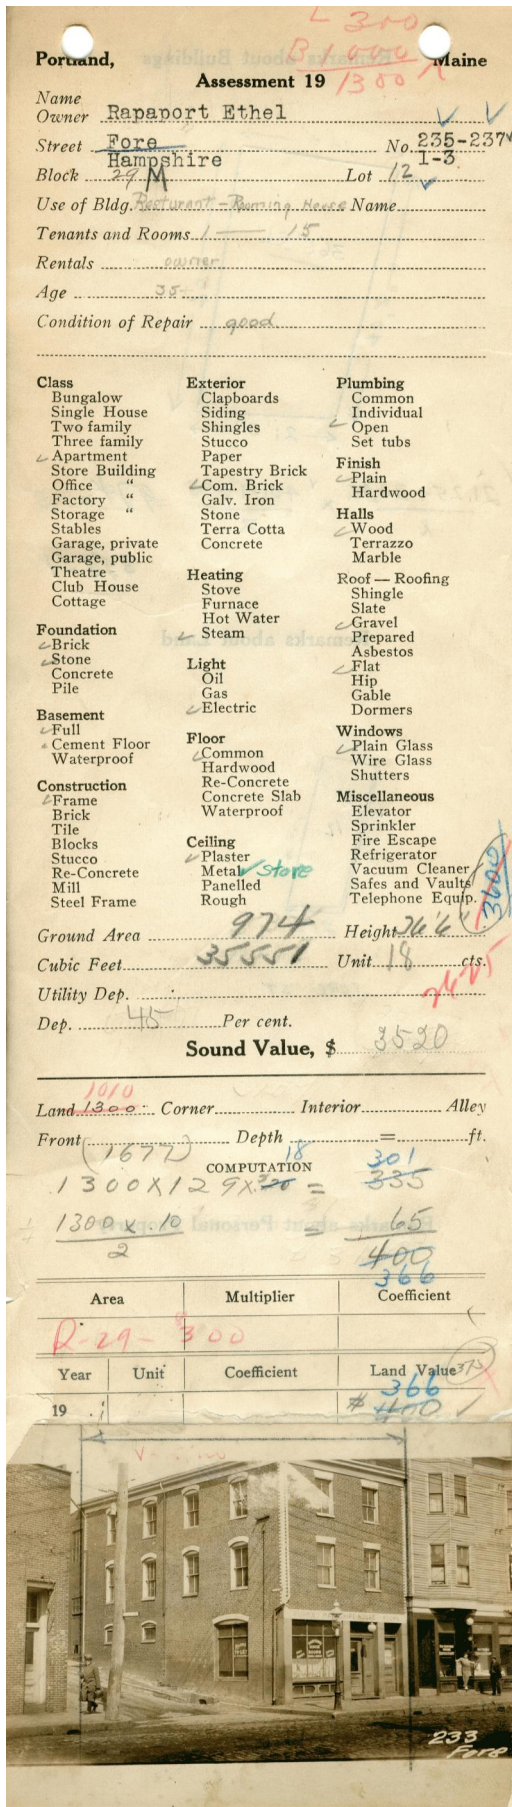 L 300
B 1000
1300
Portland, Maine
Assessment 19
Name
Owner Rapaport Ethel
Street Fore No. 235-237
Hampshire 1-3
Block 29 M Lot 12
Use of Bldg. Resturant - Rooming House Name
Tenants and Rooms 1 — 15
Rentals owner
Age 35
Condition of Repair good
Class
Bungalow
Single House
Two family
Three family
Apartment
Store Building
Office "
Factory "
Storage "
Stables
Garage, private
Garage, public
Theatre
Club House
Cottage
Foundation
Brick
Stone
Concrete
Pile
Basement
Full
Cement Floor
Waterproof
Construction
Frame
Brick
Tile
Blocks
Stucco
Re-Concrete
Mill
Steel Frame
Exterior
Clapboards
Siding
Shingles
Stucco
Paper
Tapestry Brick
Com. Brick
Galv. Iron
Stone
Terra Cotta
Concrete
Heating
Stove
Furnace
Hot Water
Steam
Light
Oil
Gas
Electric
Floor
Common
Hardwood
Re-Concrete
Concrete Slab
Waterproof
Ceiling
Plaster
Metal store
Panelled
Rough
Plumbing
Common
Individual
Open
Set tubs
Finish
Plain
Hardwood
Halls
Wood
Terrazzo
Marble
Roof — Roofing
Shingle
Slate
Gravel
Prepared
Asbestos
Flat
Hip
Gable
Dormers
Windows
Plain Glass
Wire Glass
Shutters
Miscellaneous
Elevator
Sprinkler
Fire Escape
Refrigerator
Vacuum Cleaner
Safes and Vaults
Telephone Equip.
3600
Ground Area 974 Height 36'6"
Cubic Feet 35551 Unit 18 cts.
Utility Dep.
Dep. 45 Per cent.
Sound Value, $ 3520
1010
Land 1300 Corner Interior Alley
Front Depth = ft.
(1677)
COMPUTATION 18 301
1300 X 129 X = 335
1300 x .10 = 65
2 400
366
Area Multiplier Coefficient
R-29- $300
Year Unit Coefficient Land Value 375
366
19 $ 400
233
Fore